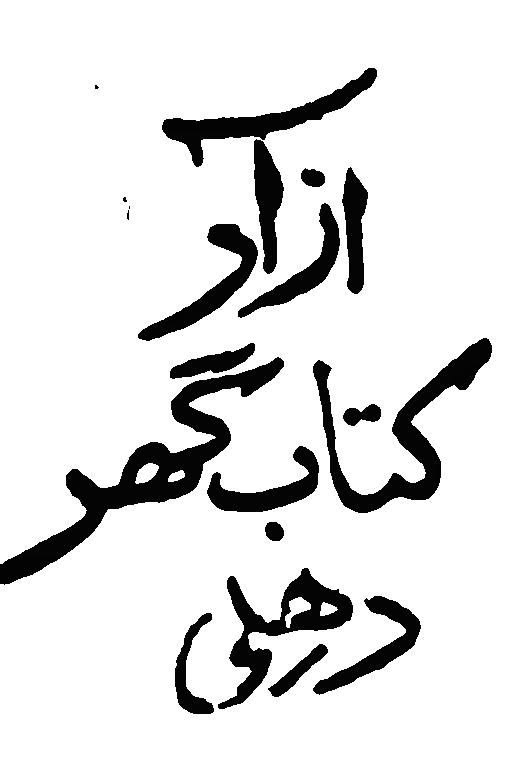 آزاد
کتاب گھر
دہلی